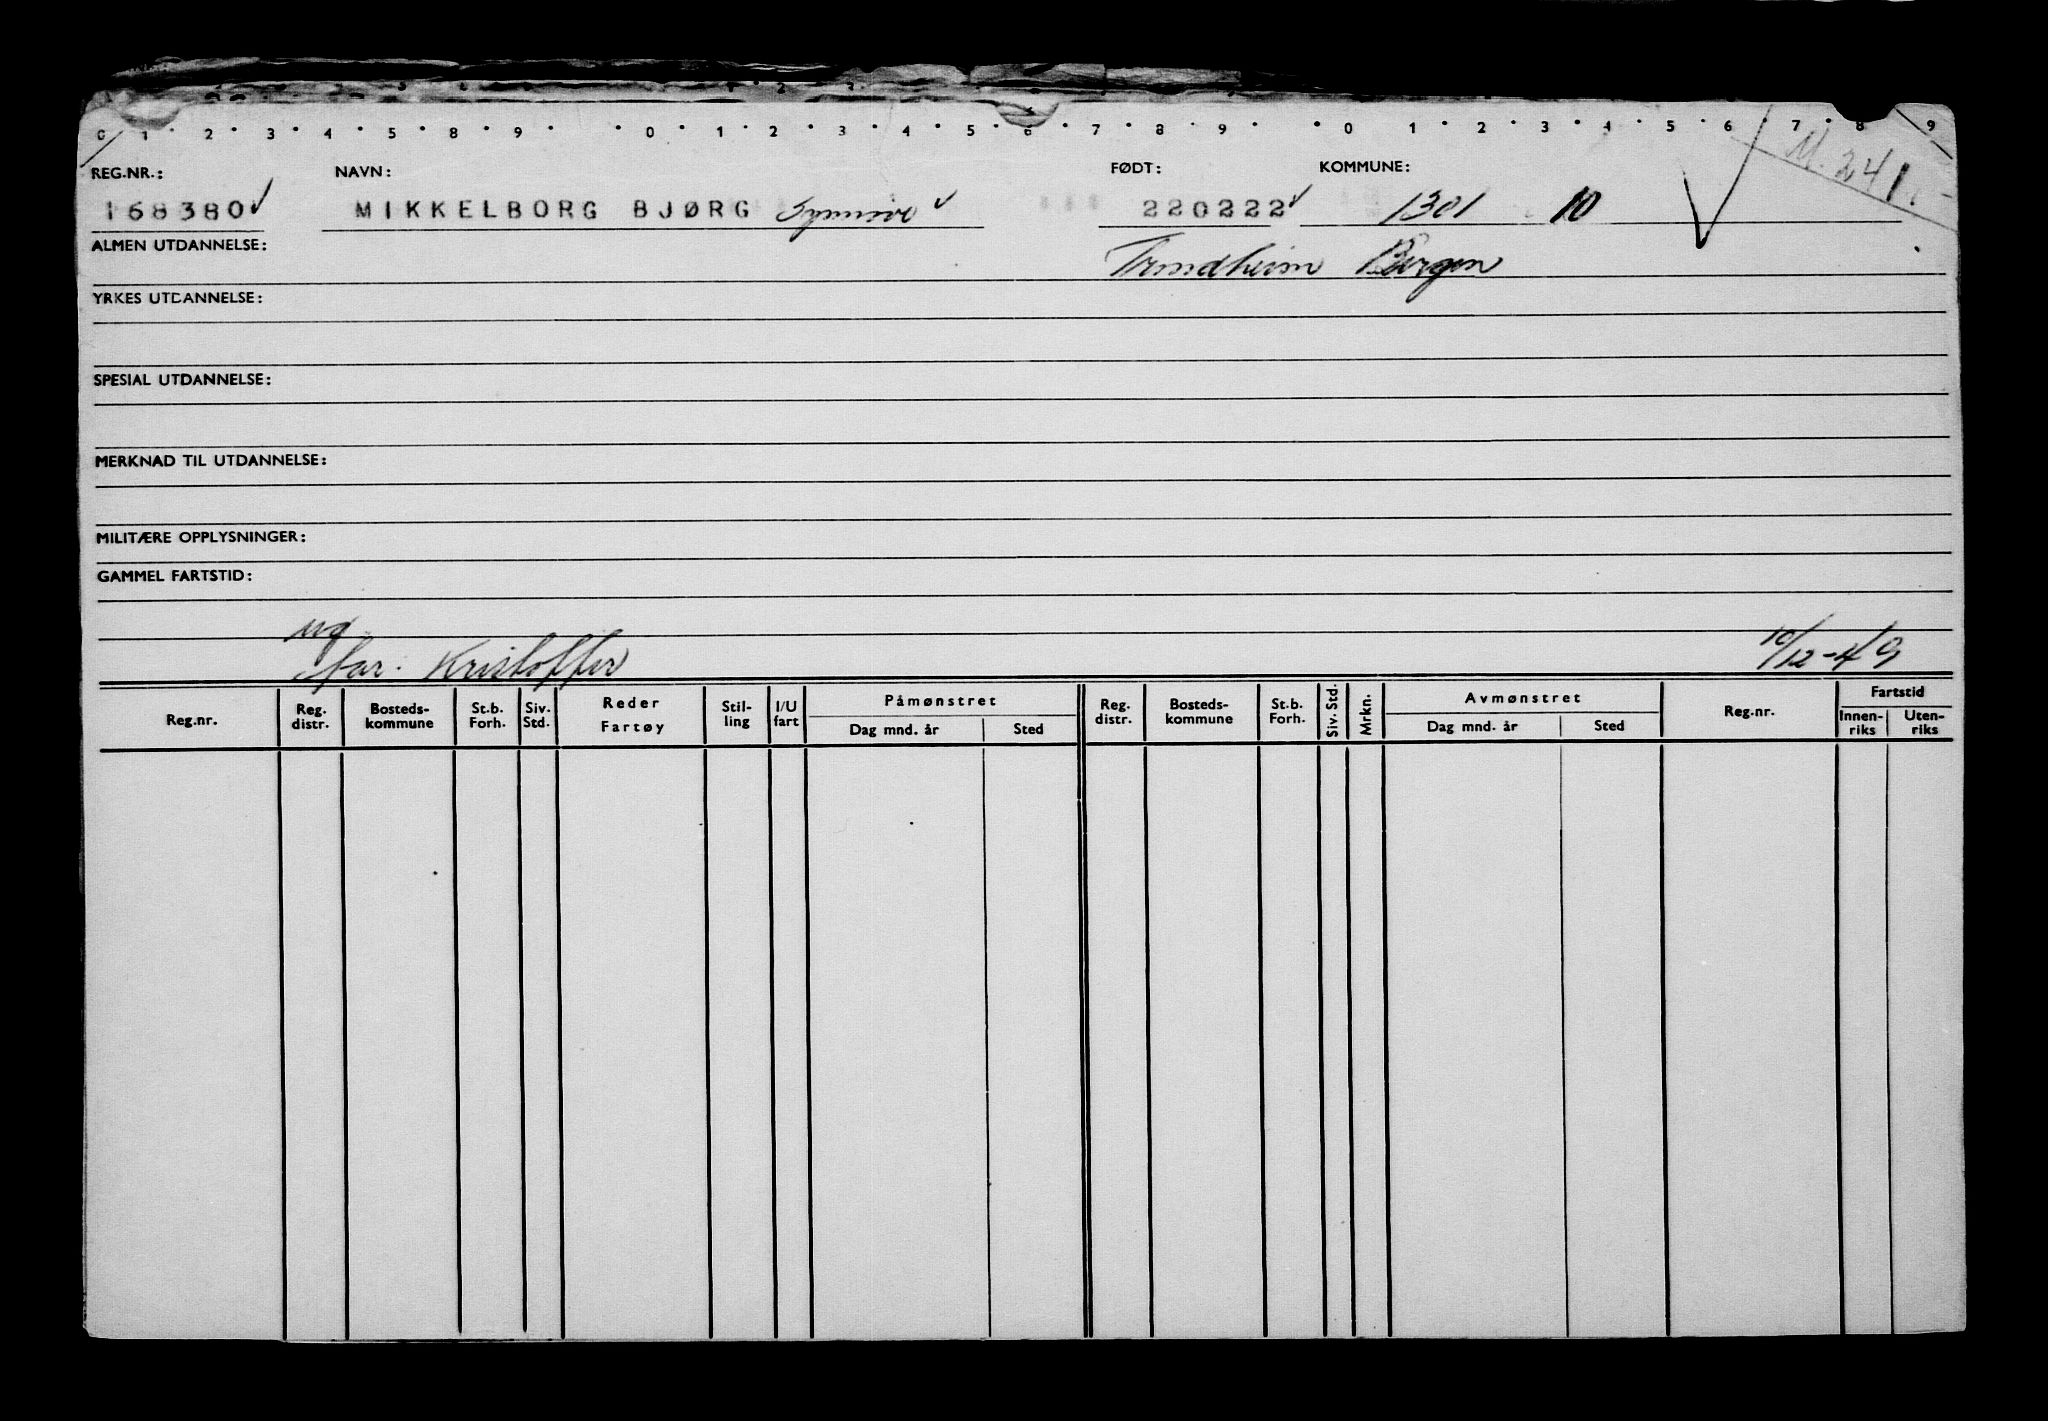 0 1 · 2 · 3 · 4 · 5 · 8 · 9 · · 0 · 1 · 2 · 3 · 4 · 5 · 6 · 7 · 8 · 9 · · 0 1 · 2 · 3 · 4 · 5 · 6 · 7 · 8 · 9
M. 241
REG.NR.: NAVN: FØDT: KOMMUNE:
168380 MIKKELBORG BJØRG Synnøve 220222 1301 10
ALMEN UTDANNELSE: Trondheim Bergen
YRKES UTDANNELSE:
SPESIAL UTDANNELSE:
MERKNAD TIL UTDANNELSE:
MILITÆRE OPPLYSNINGER:
GAMMEL FARTSTID:
ug
far. Kristoffer 10/12-49
Reg.nr. Reg. distr. Bosteds- kommune St.b. Forh. Siv. Std. Reder Fartøy Stil- ling I/U fart Påmønstret Dag mnd. år Sted Reg. distr. Bosteds- kommune St.b. Forh. Siv. Std. Mrkn. Avmønstret Dag mnd. år Sted Reg.nr. Fartstid Innen- riks Uten- riks